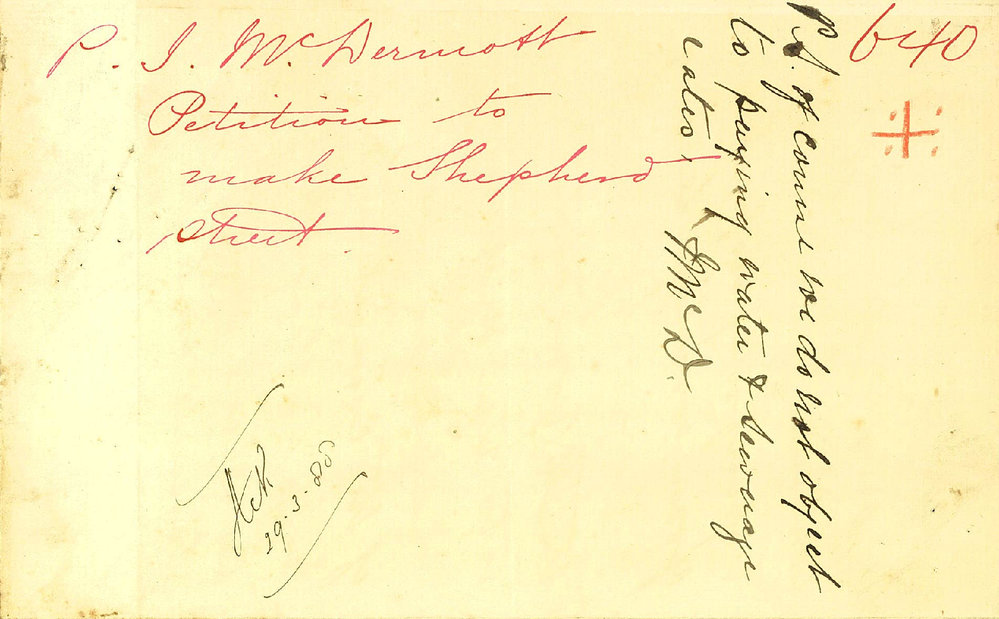 P. J. McDermott
Petition to
make Shepherd
Street.
640
P.S. of course we do not object
to paying water & sewerage
rates.
JMcD.
29.3.86